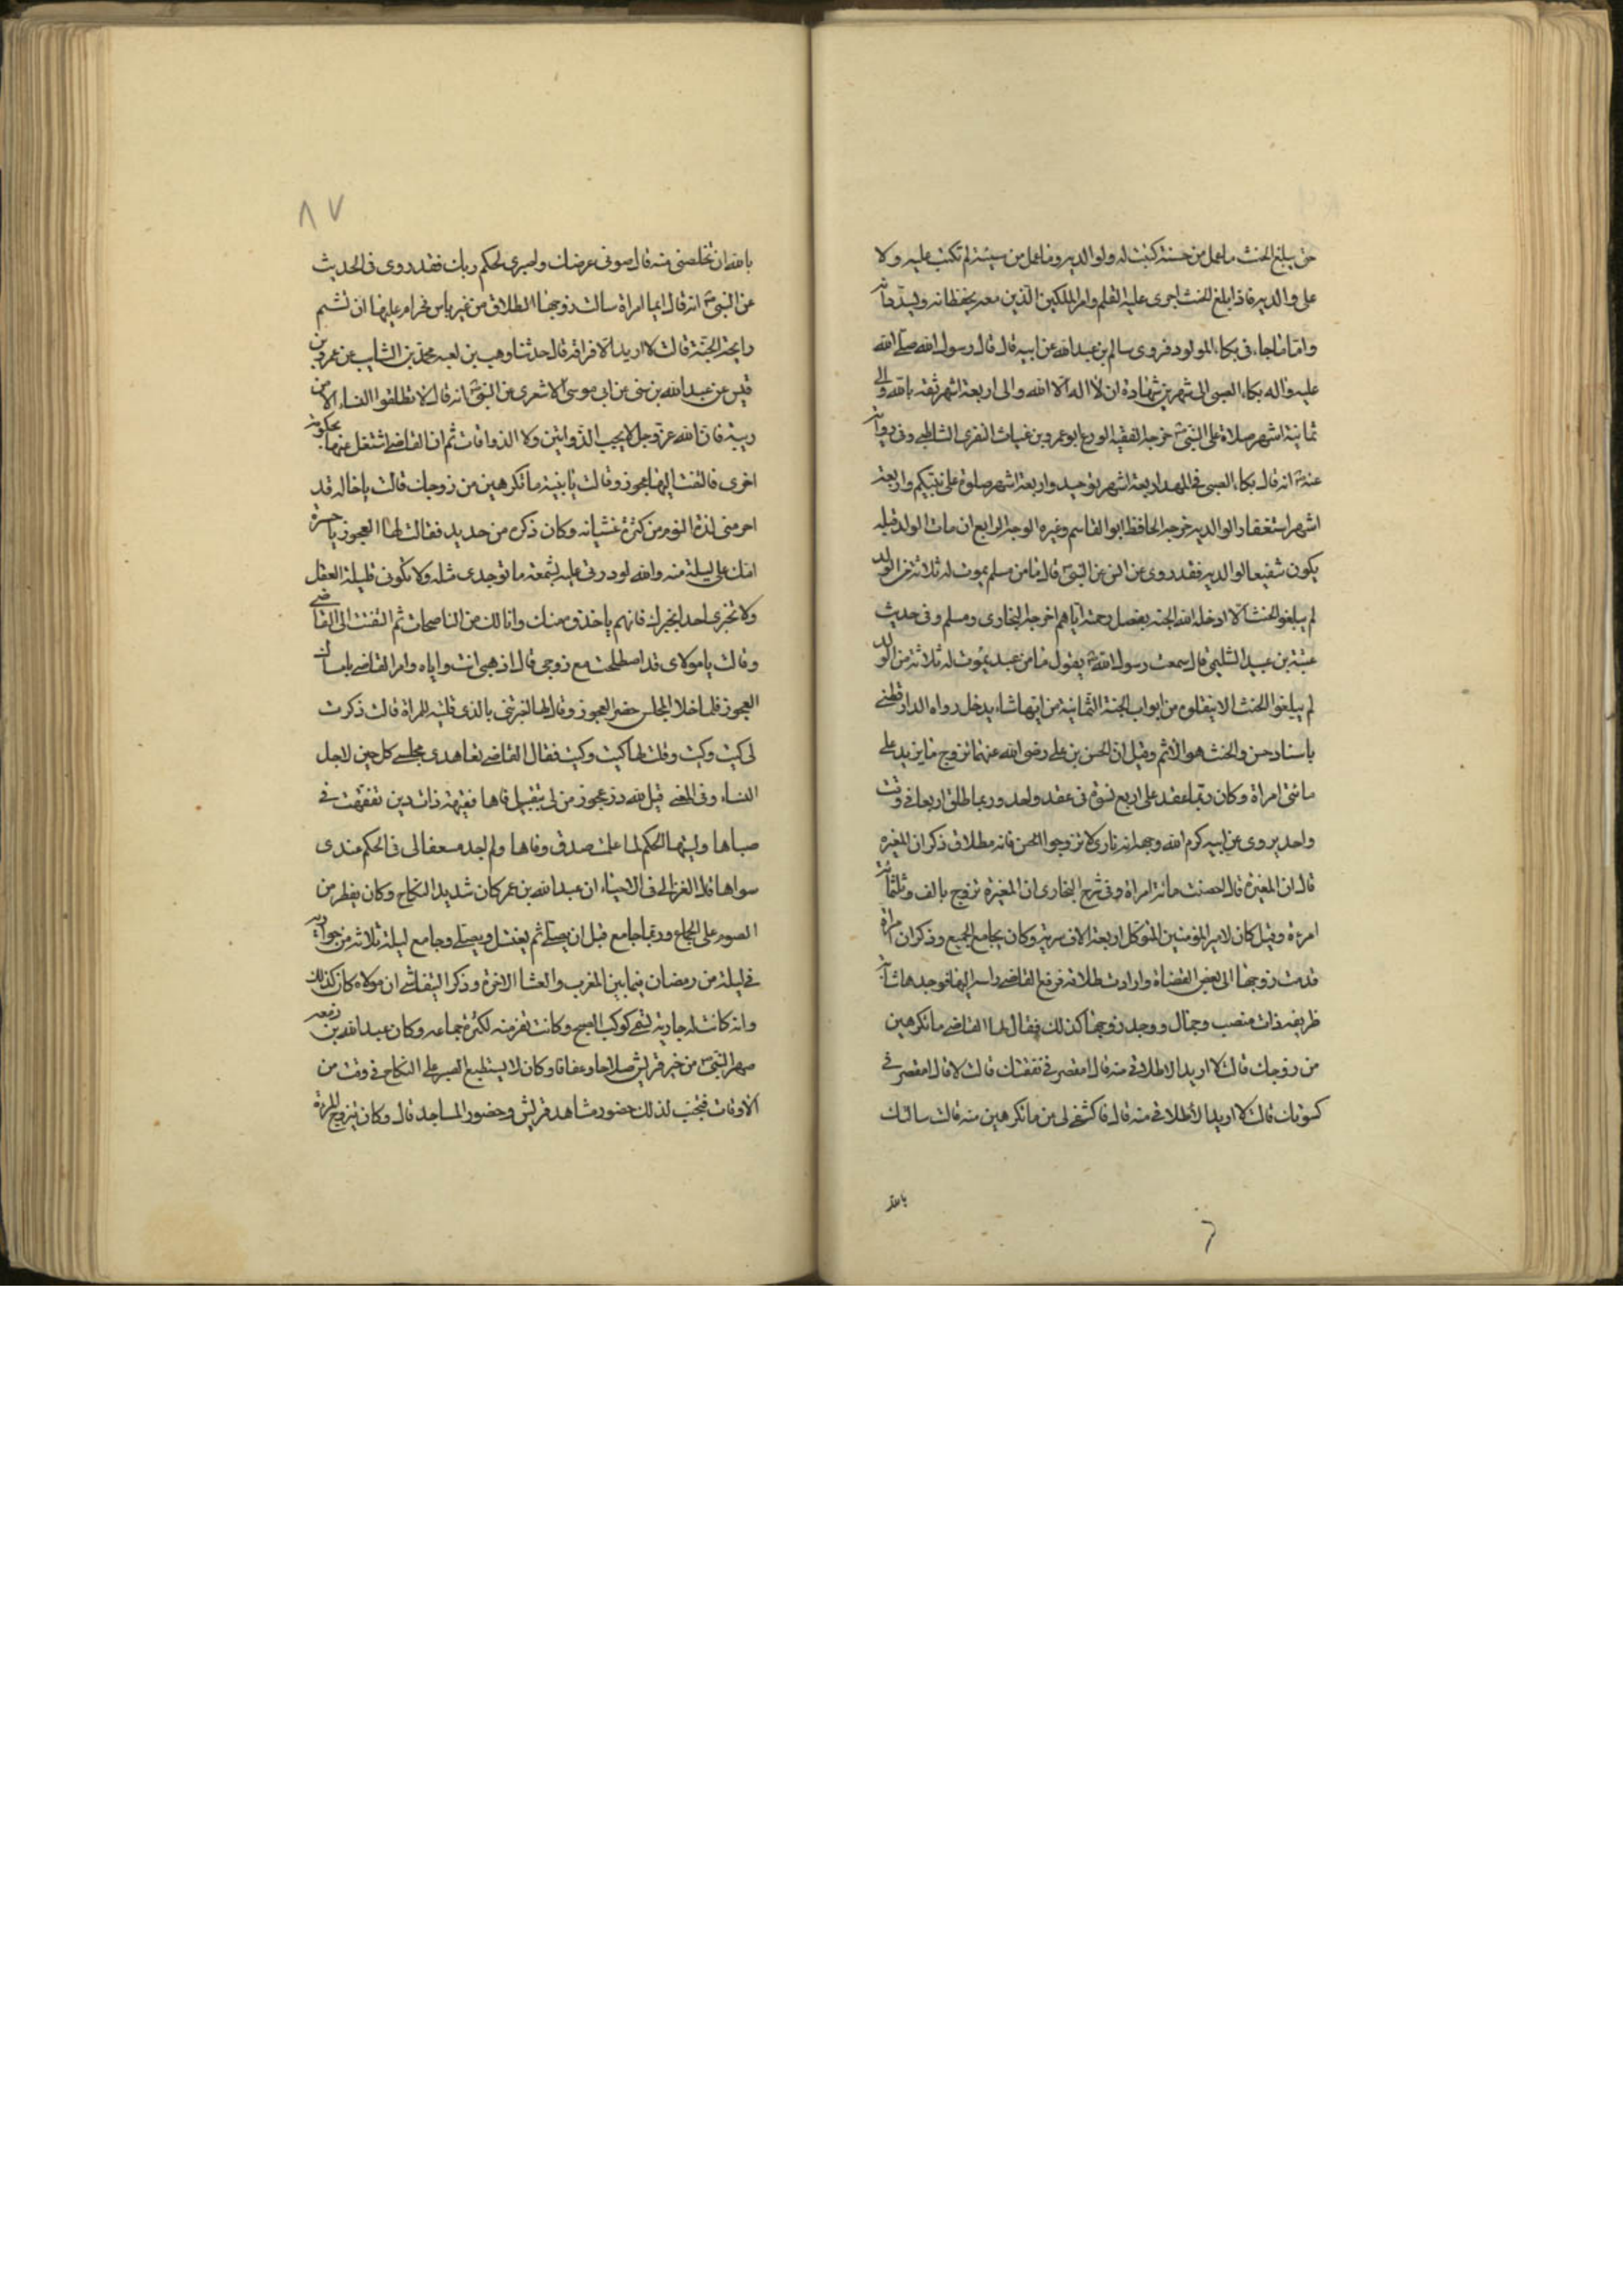 حتى يبلغ الحنث ما عمل من حسنة كتبت له ولوالديه وما عمل من سيئة لم تكتب عليه ولا
على والديه فاذا بلغ الحنث اجرى عليه القلم وامر الملكين الذين معه يحفظانه ويسددانه
واما ما جاء فى بكاء المولود فروى سالم بن عبدالله عن ابيه قال قال رسول الله صلى الله
عليه واله بكاء الصبى الى شهرين شهادة ان لا اله الا الله والى اربعة اشهر ثقة بالله والى
ثمانية اشهر صلاة على النبى خرجه الفقيه الورع ابو عمرو بن غياث المقرى الشاطبى وفى رواية
عنه انه قال بكاء الصبى فى المهد اربعة اشهر توحيد واربعة اشهر صلوة على نبيكم واربعة
اشهر استغفار لوالديه خرجه الحافظ ابو القاسم وغيره الوجه الرابع ان مات الولد قبله
يكون شفيعا لوالديه فقد روى عن انس عن النبى قال ما من مسلم يموت له ثلاثة من الولد
لم يبلغوا الحنث الا ادخله الله الجنة بفضل رحمته اياهم اخرجه البخارى ومسلم وفى حديث
عتبة بن عبيد السلمى قال سمعت رسول الله يقول ما من عبد يموت له ثلاثة من الولد
لم يبلغوا الحنث الا يتقلوه من ابواب الجنة الثمانية من ايها شاء يدخل رواه الدارقطنى
باسناد حسن والحنث هو الاثم وقيل ان الحسن بن على رضى الله عنهما تزوج ما يزيد على
مائتى امراة وكان ربما عقد على اربع نسوة فى عقد واحد وربما طلق اربعا فى وقت
واحد يروى عن ابيه كرم الله وجهه انه نادى لا تزوجوا الحسن فانه مطلاق ذكر ان المغيره
قال ان المغيرة قال احصنت مائة امراة وفى شرح البخارى ان المغيرة تزوج بالف وثلثمائة
امرءة وقيل كان لامير المؤمنين المتوكل اربعة الاف سرية وكان يجامع الجميع وذكر ان امراة
قدمت زوجها الى بعض القضاة وارادت طلاقه فرفع القاضى راسه اليها فوجدها شابة
ظريفه ذات منصب وجمال ووجد زوجها كذلك فقال لها القاضى ما تكرهين
من زوجك قالت لا اريد الا طلاقى منه قال امقصر فى نفقتك قالت لا قال امقصر فى
كسوتك قالت لا اريد الا طلاقى منه قال فاكشفى لى من ما تكرهين منه قالت سالتك
بالله
٨٧
بالله ان تخلصنى منه قال صونى عرضك واصبرى لحكم ربك فقد روى فى الحديث
عن النبى انه قال ايما امراة سالت زوجها الطلاق من غير باس فحرام عليها ان تشم
رايحة الجنة قالت لا اريد الا فراقه قال حدثنا وهيب بن لعيه محمد بن الشايب عن عمرو بن
قيس عن عبدالله بن عن ابى موسى الاشعرى عن النبى انه قال لا تطلقوا النساء الا من
ريبة فان الله عز وجل لا يحب الذواقين ولا الذواقات ثم ان القاضى اشتغل عنها بحكومة
اخرى فالتفت اليها عجوز وقالت يا بنية ما تكرهين من زوجك قالت يا خاله قد
احرمنى لذة النوم من كثرة غشيانه وكان ذكره من حديد فقالت لها العجوز يا حسرة
امك على ليلة منه والله لو درتى عليه بشمعة ما توجدى مثله ولا تكونى قليلة العقل
ولا تخبرى احدا بخبرك فانهم ياخذوه منك وانا لك من الناصحات ثم التفتت الى القاضى
وقالت يا مولاى قد اصطلحت مع زوجى قال اذهبى انت واياه وامر القاضى بامساك
العجوز فلما خلا المجلس حضر العجوز وقال لها اخبرتنى بالذى قلتيه للمراة قالت ذكرت
لى كيت وكيت وقلت لها كيت وكيت فقال القاضى تعاهدى مجلسى كل حين لاجل
النساء وفى المغنى قيل لله در عجوز من لى بتقبيل فاها فقيهة ذات دين تفقهت فى
صباها وليتها الحكم لما علمت صدق وفاها ولم اجد مسعفا لى فى الحكم عندى
سواها قال الغزالى فى الاحياء ان عبدالله بن عمر كان شديد النكاح وكان يفطر من
الصوم على الجماع وربما جامع قبل ان يصلى ثم يغتسل ويصلى وجامع ليلة ثلاثه من جواريه
فى ليلة من رمضان فيما بين المغرب والعشا الاخرة وذكر التيفاشى ان مولاه كان كذلك
وانه كانت له جارية تسمى كوكب الصبح وكانت تفر منه لكثرة جماعه وكان عبدالله بن ربيعه
صهر النبى من خير قريش صلاحا وعفافا وكان لا يستطيع الصبر على النكاح فى وقت من
الاوقات فتجنب لذلك حضور مشاهد قريش وحضور المساجد قال وكان يتزوج المرءة